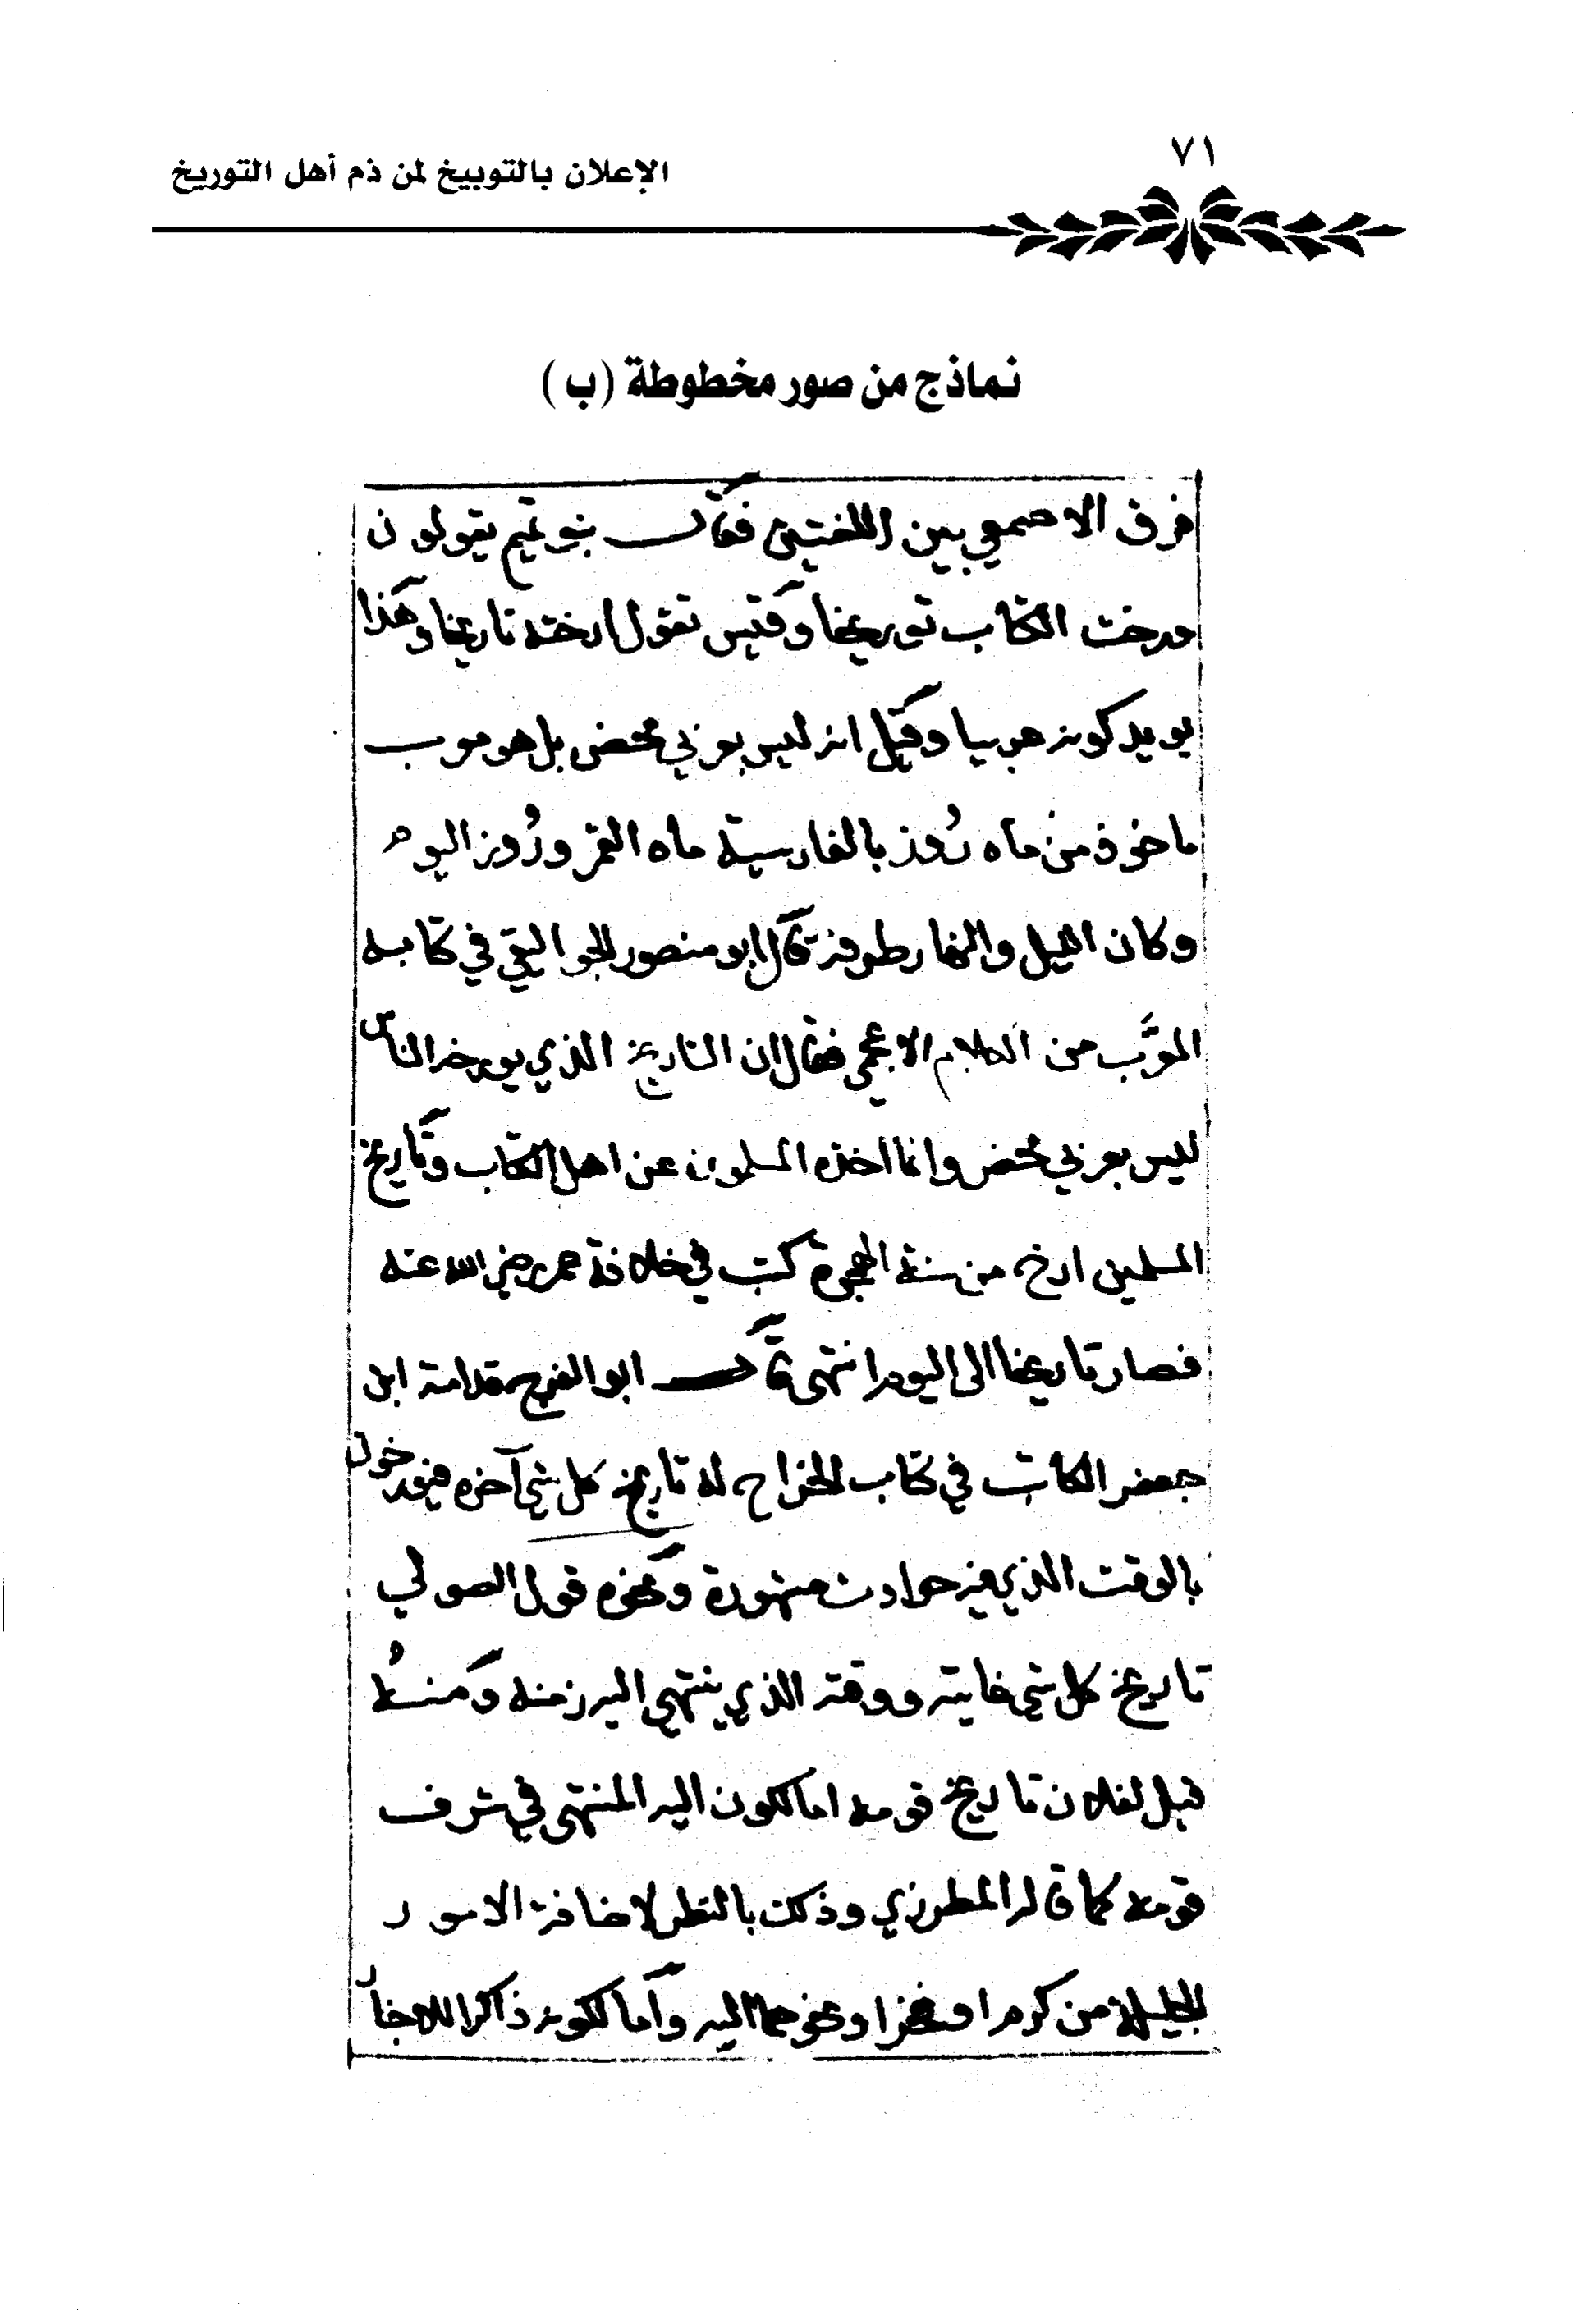 ٧١
الإعلان بالتوبيخ لمن ذم أهل التوريخ
نماذج من صور مخطوطة (ب)
فرق الاصمعي بين اللغتين فقال بنو تميم يقولون
ورخت الكتاب توريخا وقيس تقول ارخته تاريخا وهذا
يويد كونه عربيا وقيل انه ليس بعربي محض بل هو معرب
ماخوذ من ماه رُوز بالفارسية ماه القمر ورُوز اليوم
وكان الليل والنهار طرفه قال ابو منصور الجواليقي في كتابه
المعرَّب من الكلام الاعجمي فقال ان التاريخ الذي يورخه الناس
ليس بعربي محض وانما اخذه المسلمون عن اهل الكتاب وتاريخ
المسلمين ارخ من سنة الهجرة كتب في خلافة عمر رضي الله عنه
فصار تاريخا الى اليوم انتهى قال ابو الفرج قدامة ابن
جعفر الكاتب في كتاب الخراج له تاريخ كل شي آخره فيورخون
بالوقت الذي فيه حوادث مشهورة ونحوه قول الصولي
تاريخ كل شي غايته ووقته الذي ينتهي اليه زمنه ومنهُ
قيل لفلان تاريخ قومه اما لكون اليه المنتهى في شرف
قومه كما قاله المطرزي وذلك بالنظر لاضافة الامور
الجليلة من كرم او فخر او نحوهما اليه واما لكونه ذاكرا للاخبار